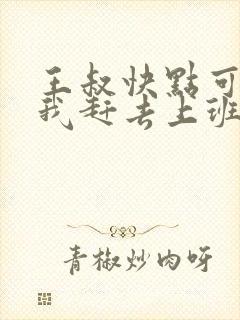 王叔快點可
我赶去上班
青椒炒肉呀